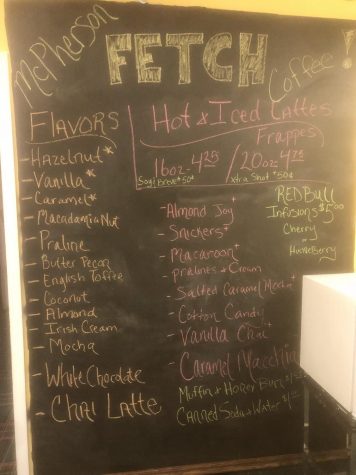 McPherson
FETCH
Coffee!
FLAVORS
- Hazelnut*
- Vanilla*
- Caramel*
- Macadamia Nut
- Praline
- Butter Pecan
- English Toffee
- Coconut
- Almond
- Irish Cream
- Mocha
- White Chocolate
- Chai Latte
Hot & Iced Lattes
Frappes
16oz - 4.25 / 20oz - 4.75
Soy/Breve +50¢ Xtra Shot +50¢
- Almond Joy+
- Snickers+
- Macaroon+
- pralines & Cream
- Salted Caramel Mocha+
- Cotton Candy
- Vanilla Chai+
- Caramel
Muffin & Honey Bun
Canned Soda & Water
REDBull
Infusions $5.00
Cherry
or
HuckleBerry